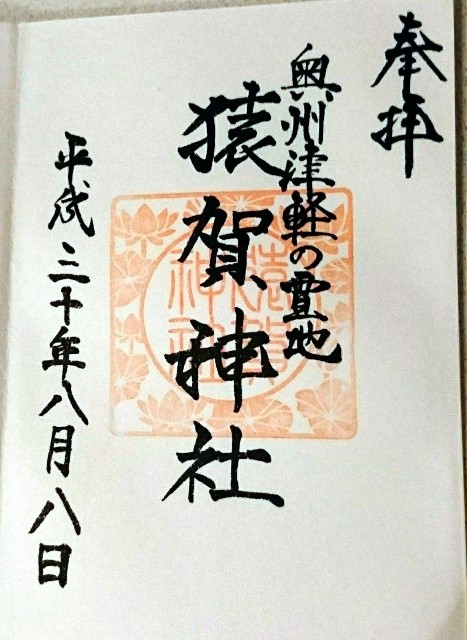 奉拝
奥州津軽の霊地
猿賀神社
平成三十年八月八日
猿賀
神社